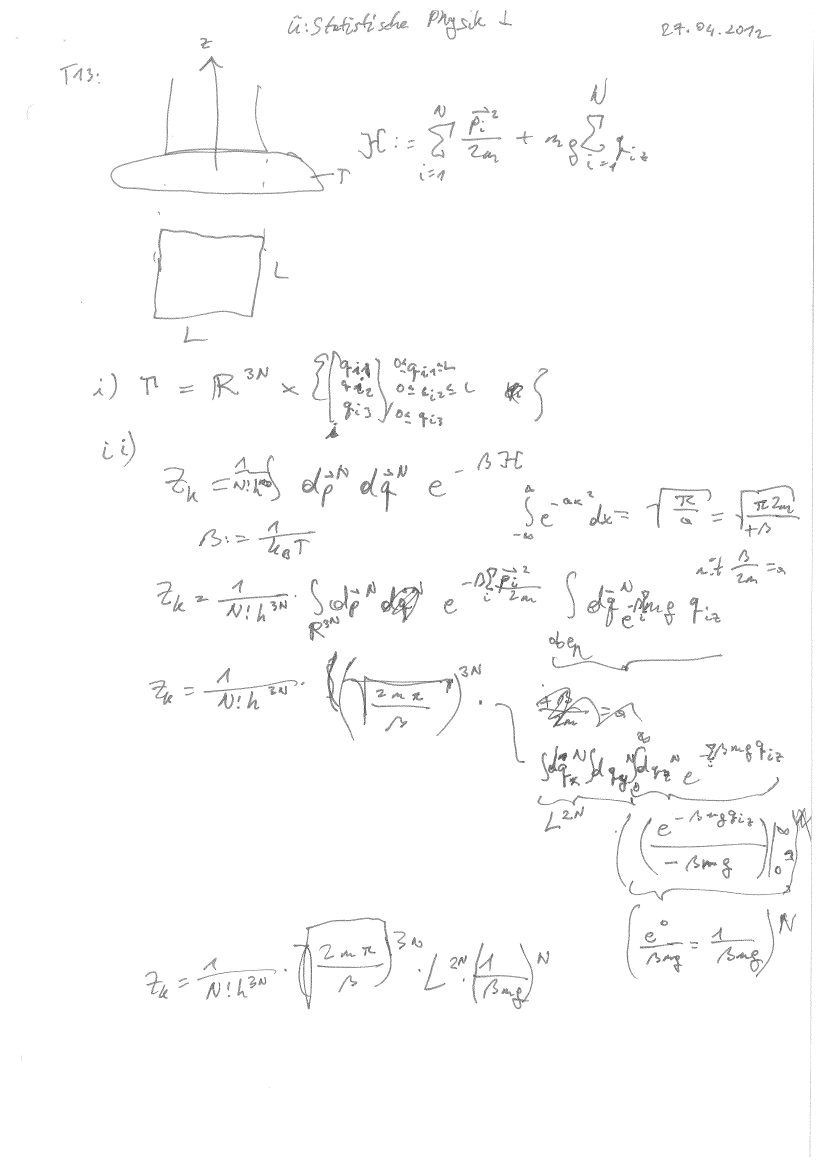 Ü: Statistische Physik 1
27.04.2012
T13:
z
ℋ := ∑_{i=1}^{N} p⃗_i²/2m + mg ∑_{i=1}^{N} q_{iz}
T
L
L
i) Γ = ℝ^{3N} × { (q_{i1} q_{i2} q_{i3})_i / 0≤q_{i1}≤L 0≤q_{i2}≤L 0≤q_{i3} }
ii)
Z_k = 1/(N!h^{3N}) ∫ dp⃗^N dq⃗^N e^{-βℋ}
∫_{-∞}^{∞} e^{-ax²} dx = √(π/a) = √(π2m/+β)
β := 1/(k_B T)
mit β/2m = a
Z_k = 1/(N!h^{3N}) · ∫_{ℝ^{3N}} dp⃗^N e^{-β∑_i p⃗_i²/2m} ∫_{oben} dq⃗^N e^{-β∑_i mg q_{iz}}
Z_k = 1/(N!h^{3N}) · (√(2mπ/β))^{3N} ·
∫dq_x^N ∫dq_y^N ∫_0^∞ dq_z^N e^{-∑_i βmg q_{iz}}
L^{2N}
· ((e^{-βmg q_{iz}}/-βmg)|_0^∞)^N
(e^0/βmg = 1/βmg)^N
Z_k = 1/(N!h^{3N}) · (√(2mπ/β))^{3N} · L^{2N} · (1/βmg)^N